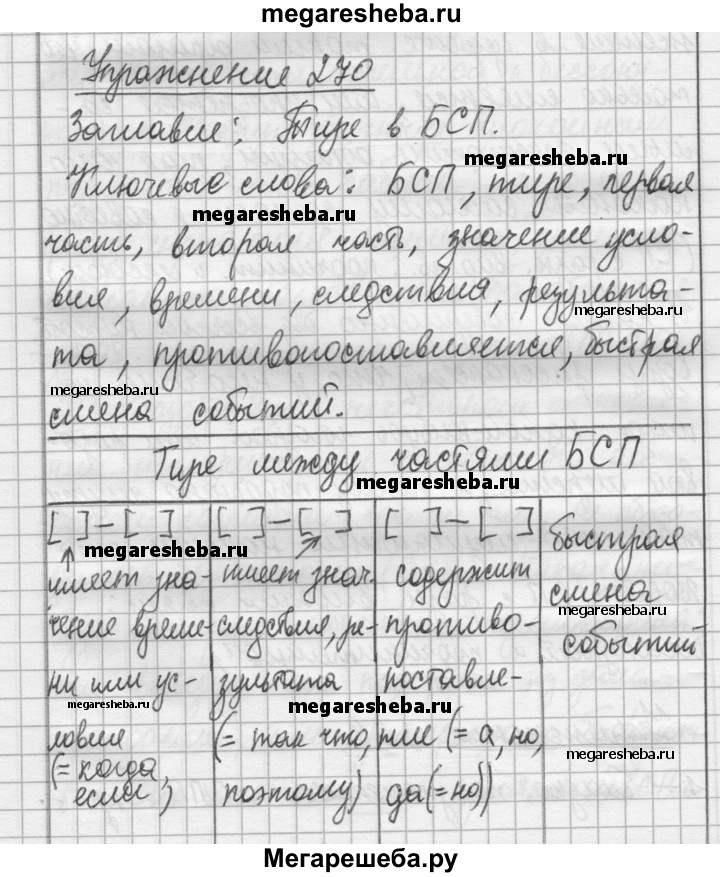 megaresheba.ru
Упражнение 270
Заглавие: Тире в БСП.
megaresheba.ru
Ключевые слова: БСП, тире, первая
megaresheba.ru
часть, вторая часть, значение усло-
вия, времени, следствия, результа-
megaresheba.ru
та, противопоставляется, быстрая
megaresheba.ru
смена событий.
Тире между частями БСП
megaresheba.ru
[ ]–[ ] [ ]–[ ] [ ]–[ ] быстрая
megaresheba.ru
имеет зна- имеет знач. содержит смена
megaresheba.ru
чение време- следствия, ре- противо- событий
ни или ус- зультата поставле-
megaresheba.ru megaresheba.ru
ловия (= так что, ние (= а, но,
megaresheba.ru
(= когда, поэтому) да(=но))
если)
Мегарешеба.ру